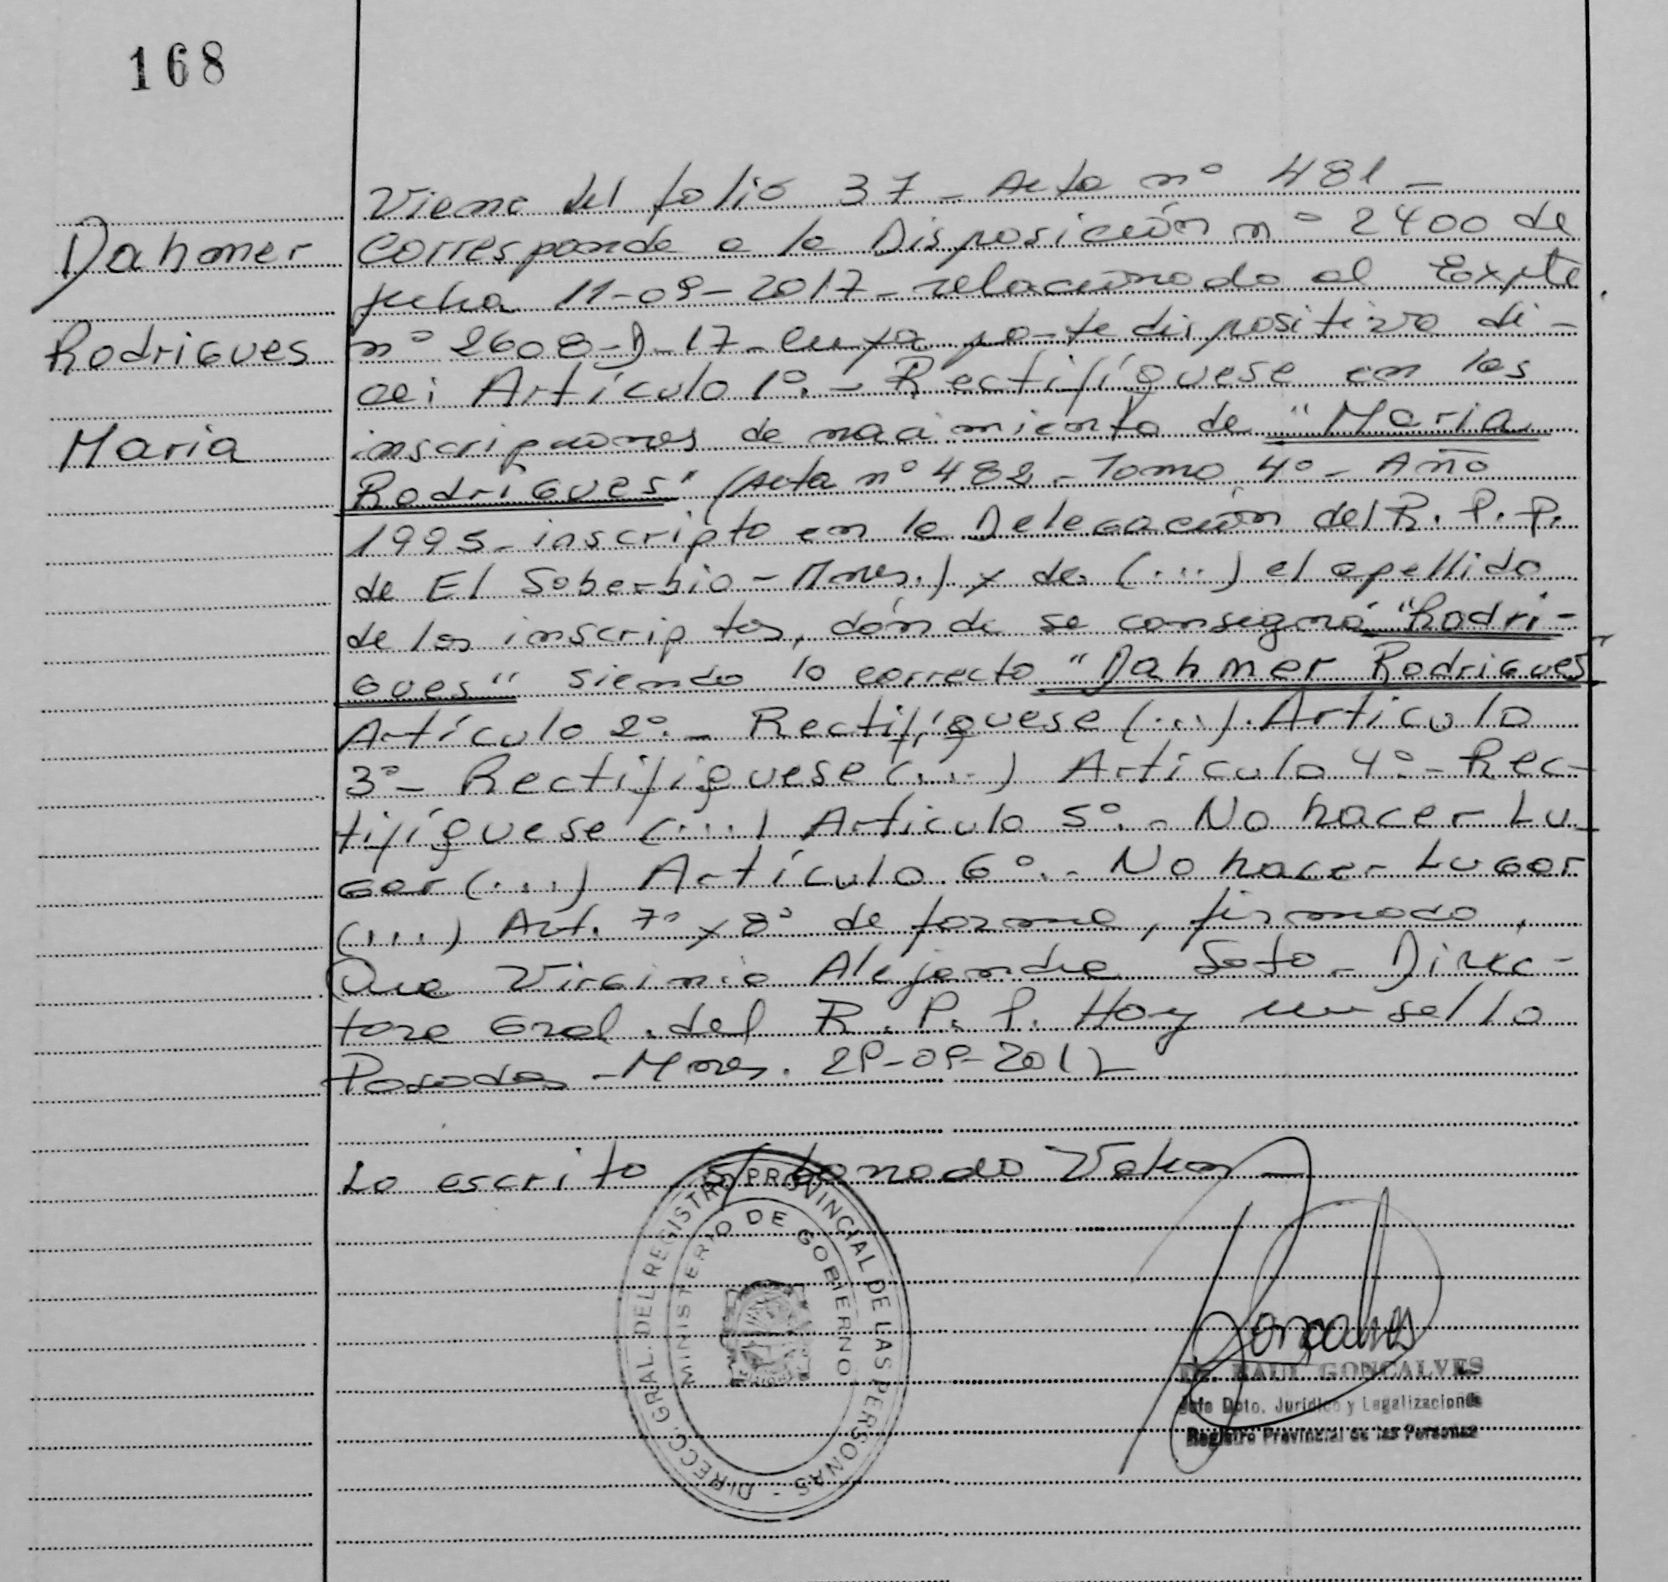 168
Viene del folio 37 - Acta nº 481 -
Dahmer
Corresponde a la Disposición nº 2400 de
fecha 11-09-2017 - relacionado al Expte.
Rodrigues
nº 2608-D-17 - cuya parte dispositiva di-
ce: Artículo 1º.- Rectifíquese en las
Maria
inscripciones de nacimiento de "Maria
Rodrigues" (Acta nº 482 - Tomo 4º - Año
1995 - inscripto en la Delegación del R. P. P.
de El Soberbio - Mnes.) y de (...) el apellido
de los inscriptos, dónde se consignó "Rodri-
gues" siendo lo correcto "Dahmer Rodrigues"
Artículo 2º.- Rectifíquese (...). Artículo
3º- Rectifíquese (...) Artículo 4º.- Rec-
tifíquese (...) Artículo 5º.- No hacer Lu-
gar (...) Artículo 6º.- No hacer Lugar
(...) Art. 7º y 8º de forma, firmado,
Virginia Alejandra Soto - Direc-
tora Gral. del R. P. P. Hoy sello
Posadas - Mnes. 29-09-2017
Lo escrito s/ borrado Vale
DIRECC. GRAL. DEL REGISTRO PROVINCIAL DE LAS PERSONAS -
MINISTERIO DE GOBIERNO
Goncalves
Dr. RAUL GONCALVES
Jefe Dpto. Jurídico y Legalizaciones
Registro Provincial de las Personas